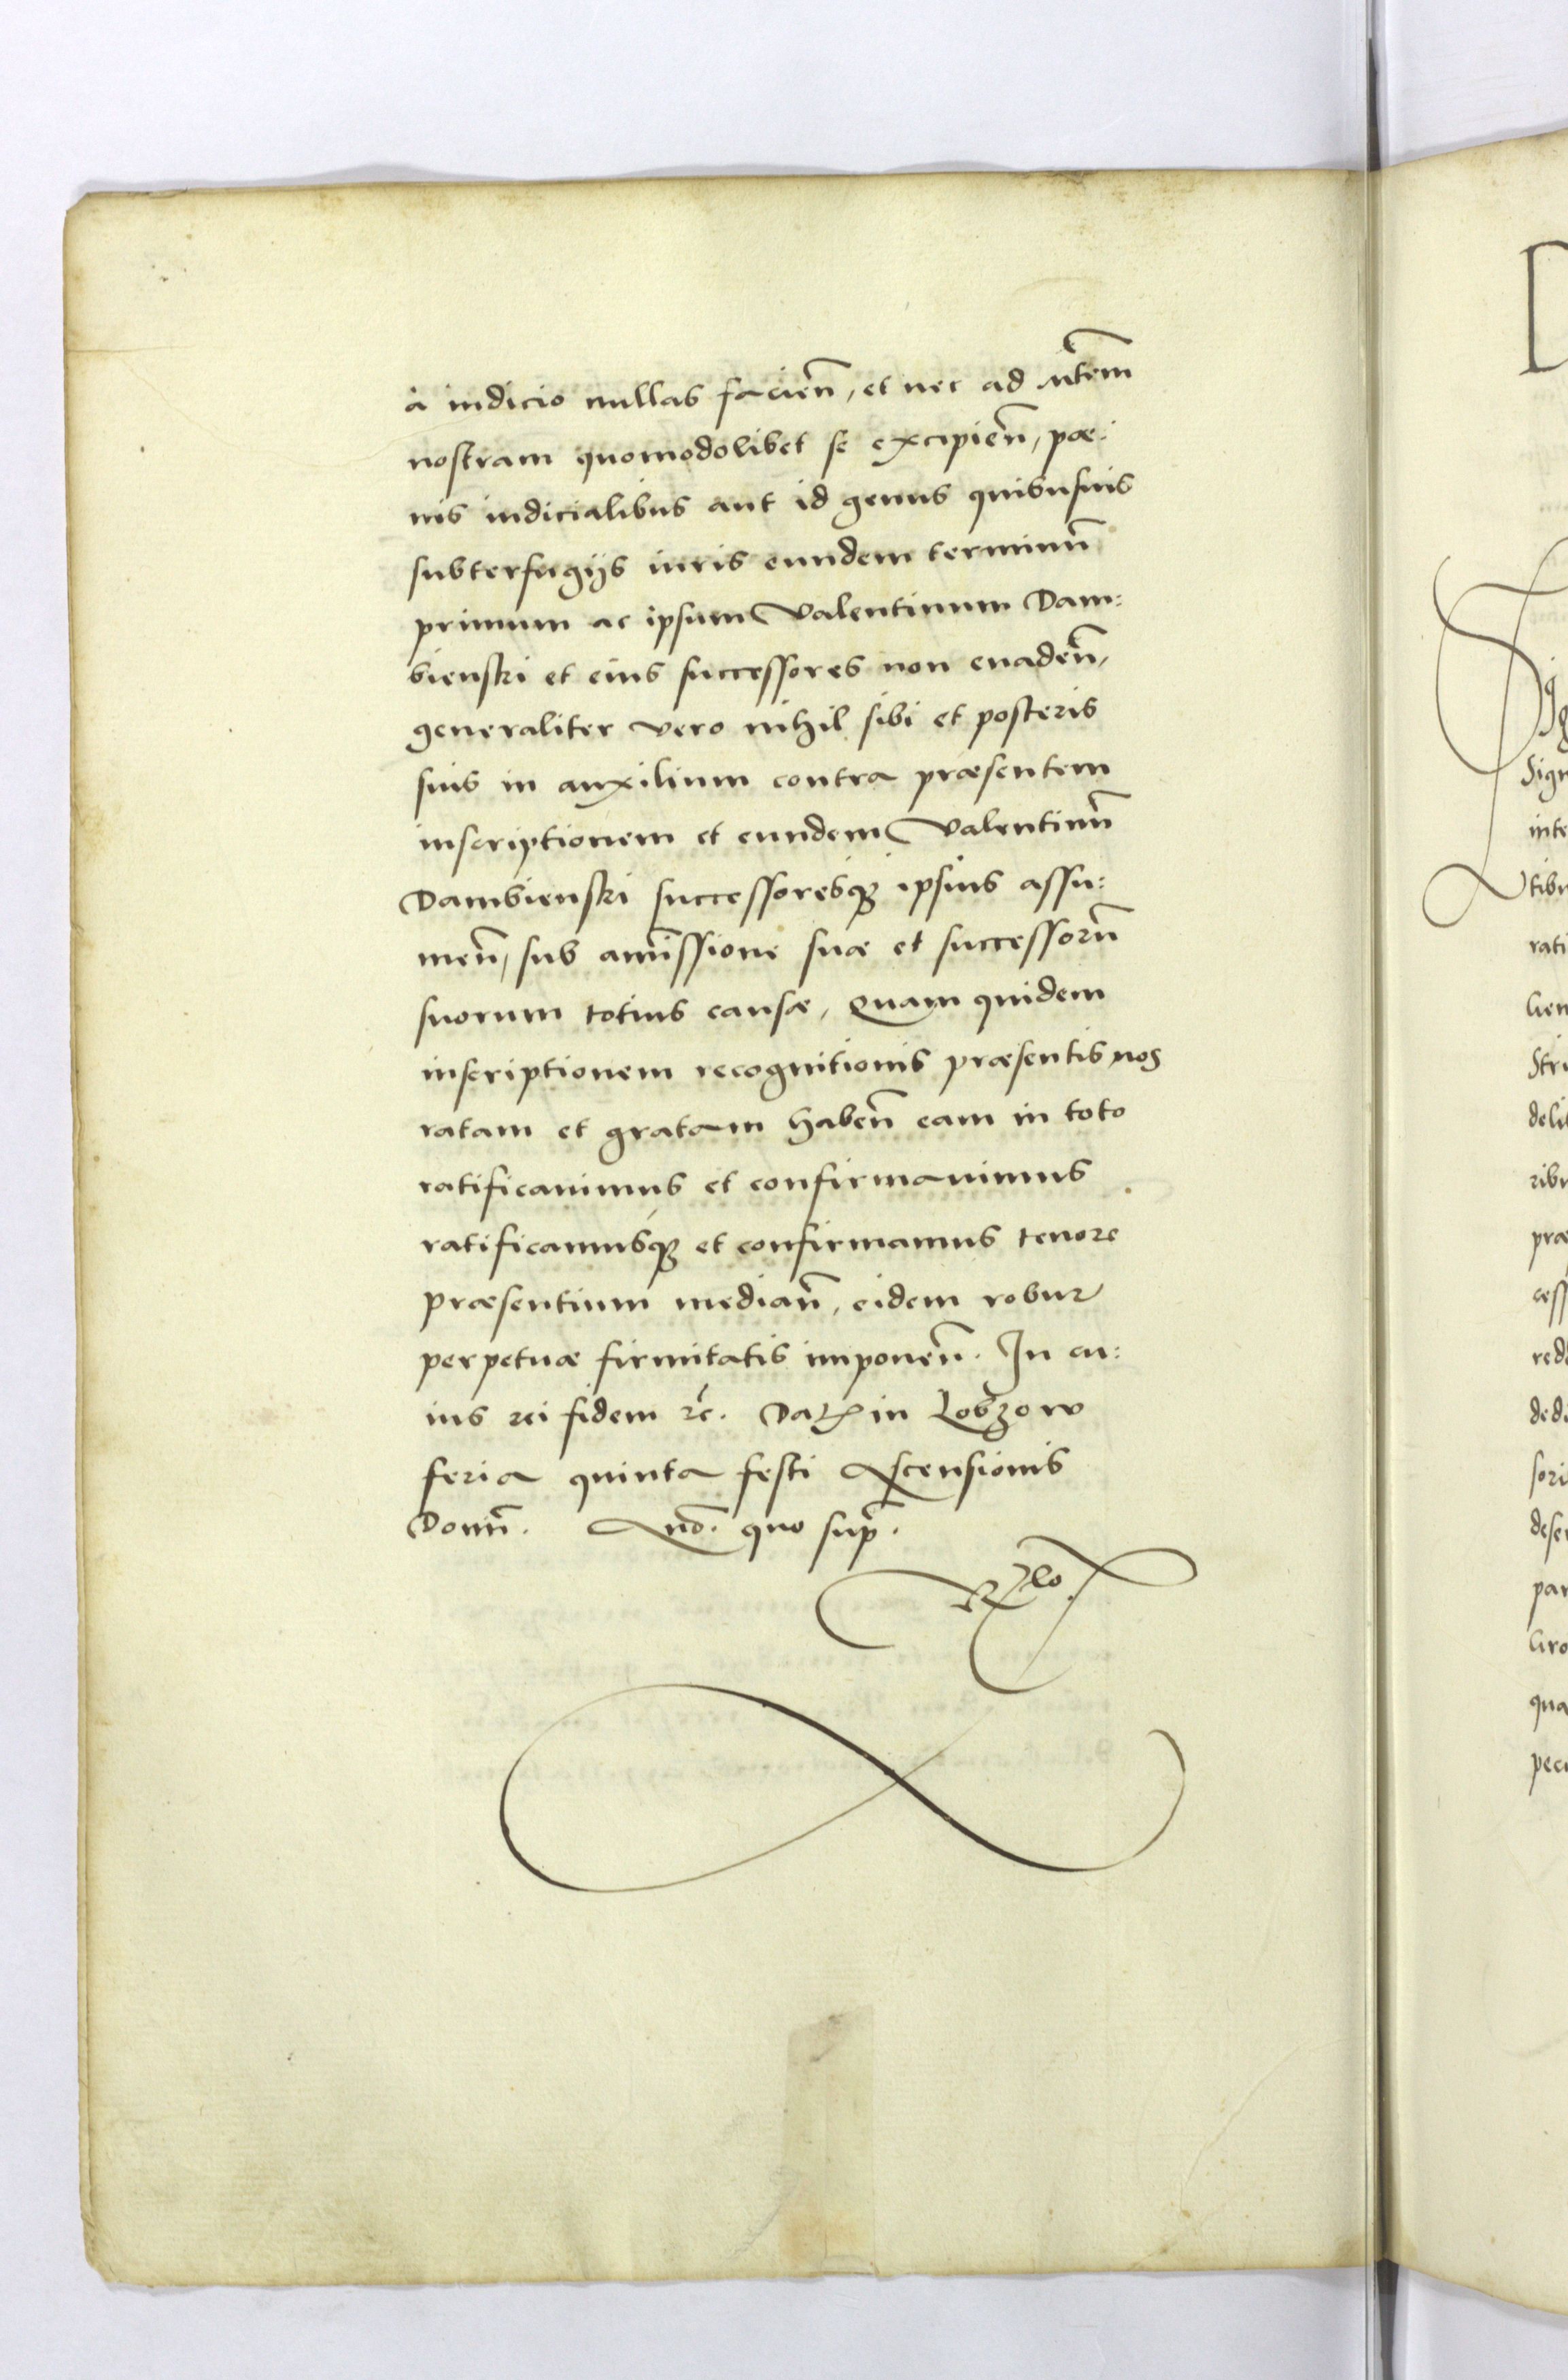 à iudicio nullas facien̄, et nec ad Mtēm
nostram quomodolibet se excipien̄, pœ:
nis iudicialibus aut id genus quibusuis
subterfugijs iuris eundem terminū
primum ac ipsum Valentinum Dam:
bienski et eius successores non euaden̄,
generaliter vero nihil sibi et posteris
suis in auxilium contra præsentem
inscriptionem et eundem Valentinū
Dambienski successoresq̃ ipsius assu:
men̄, sub amissione suæ et successorū
suorum totius causæ, Quam quidem
inscriptionem recognitionis præsentis nos
ratam et gratam haben̄ eam in toto
ratificauimus et confirmauimus
ratificamusq̃ et confirmamus tenore
præsentium median̄, eidem robur
perpetuæ firmitatis imponen̄. In cu:
ius rei fidem &c̄. Dat in Lobzow
feria quinta festi Ascensionis
Domī. Año. quo sup̄.
Sign
inte
tibu
rati
lien
Stri
delit
ribu
præ
cess
redd
dedi
sori
dese
par
qua
pecu